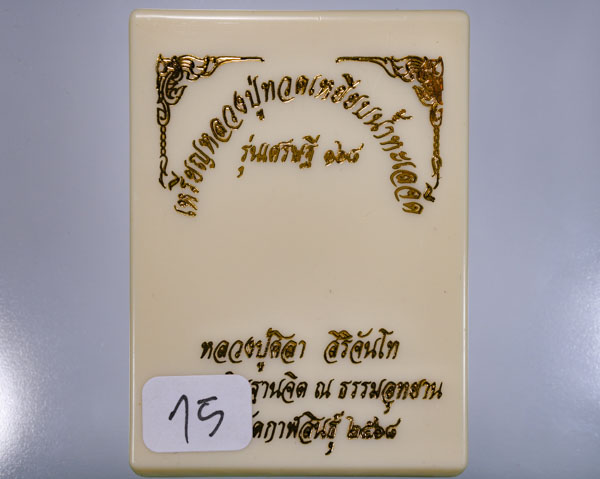 เหรียญหลวงปู่ทวดเหยียบน้ำทะเลจืด
รุ่นเศรษฐี ๑๖๘
หลวงปู่ศิลา สิริจันโท
ฐานจิต ณ ธรรมอุทยาน
กาฬสินธุ์ ๒๕๖๘
15